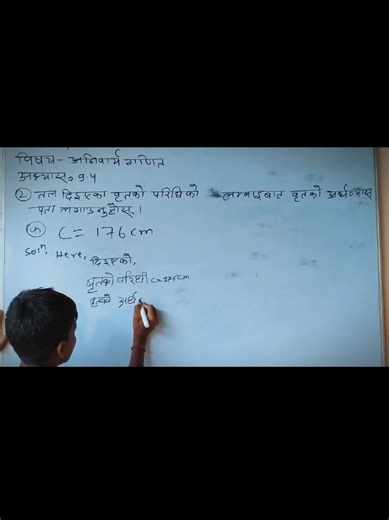 विषय - अनिवार्य गणित
अभ्यास 9.4
② तल दिइएका वृतको परिधिको लम्बाइबाट वृतको अर्धव्यास
पत्ता लगाउनुहोस् ।
C = 176 cm
Soln, Here, दिइएको,
वृतको परिधी cm
वृतको अर्ध